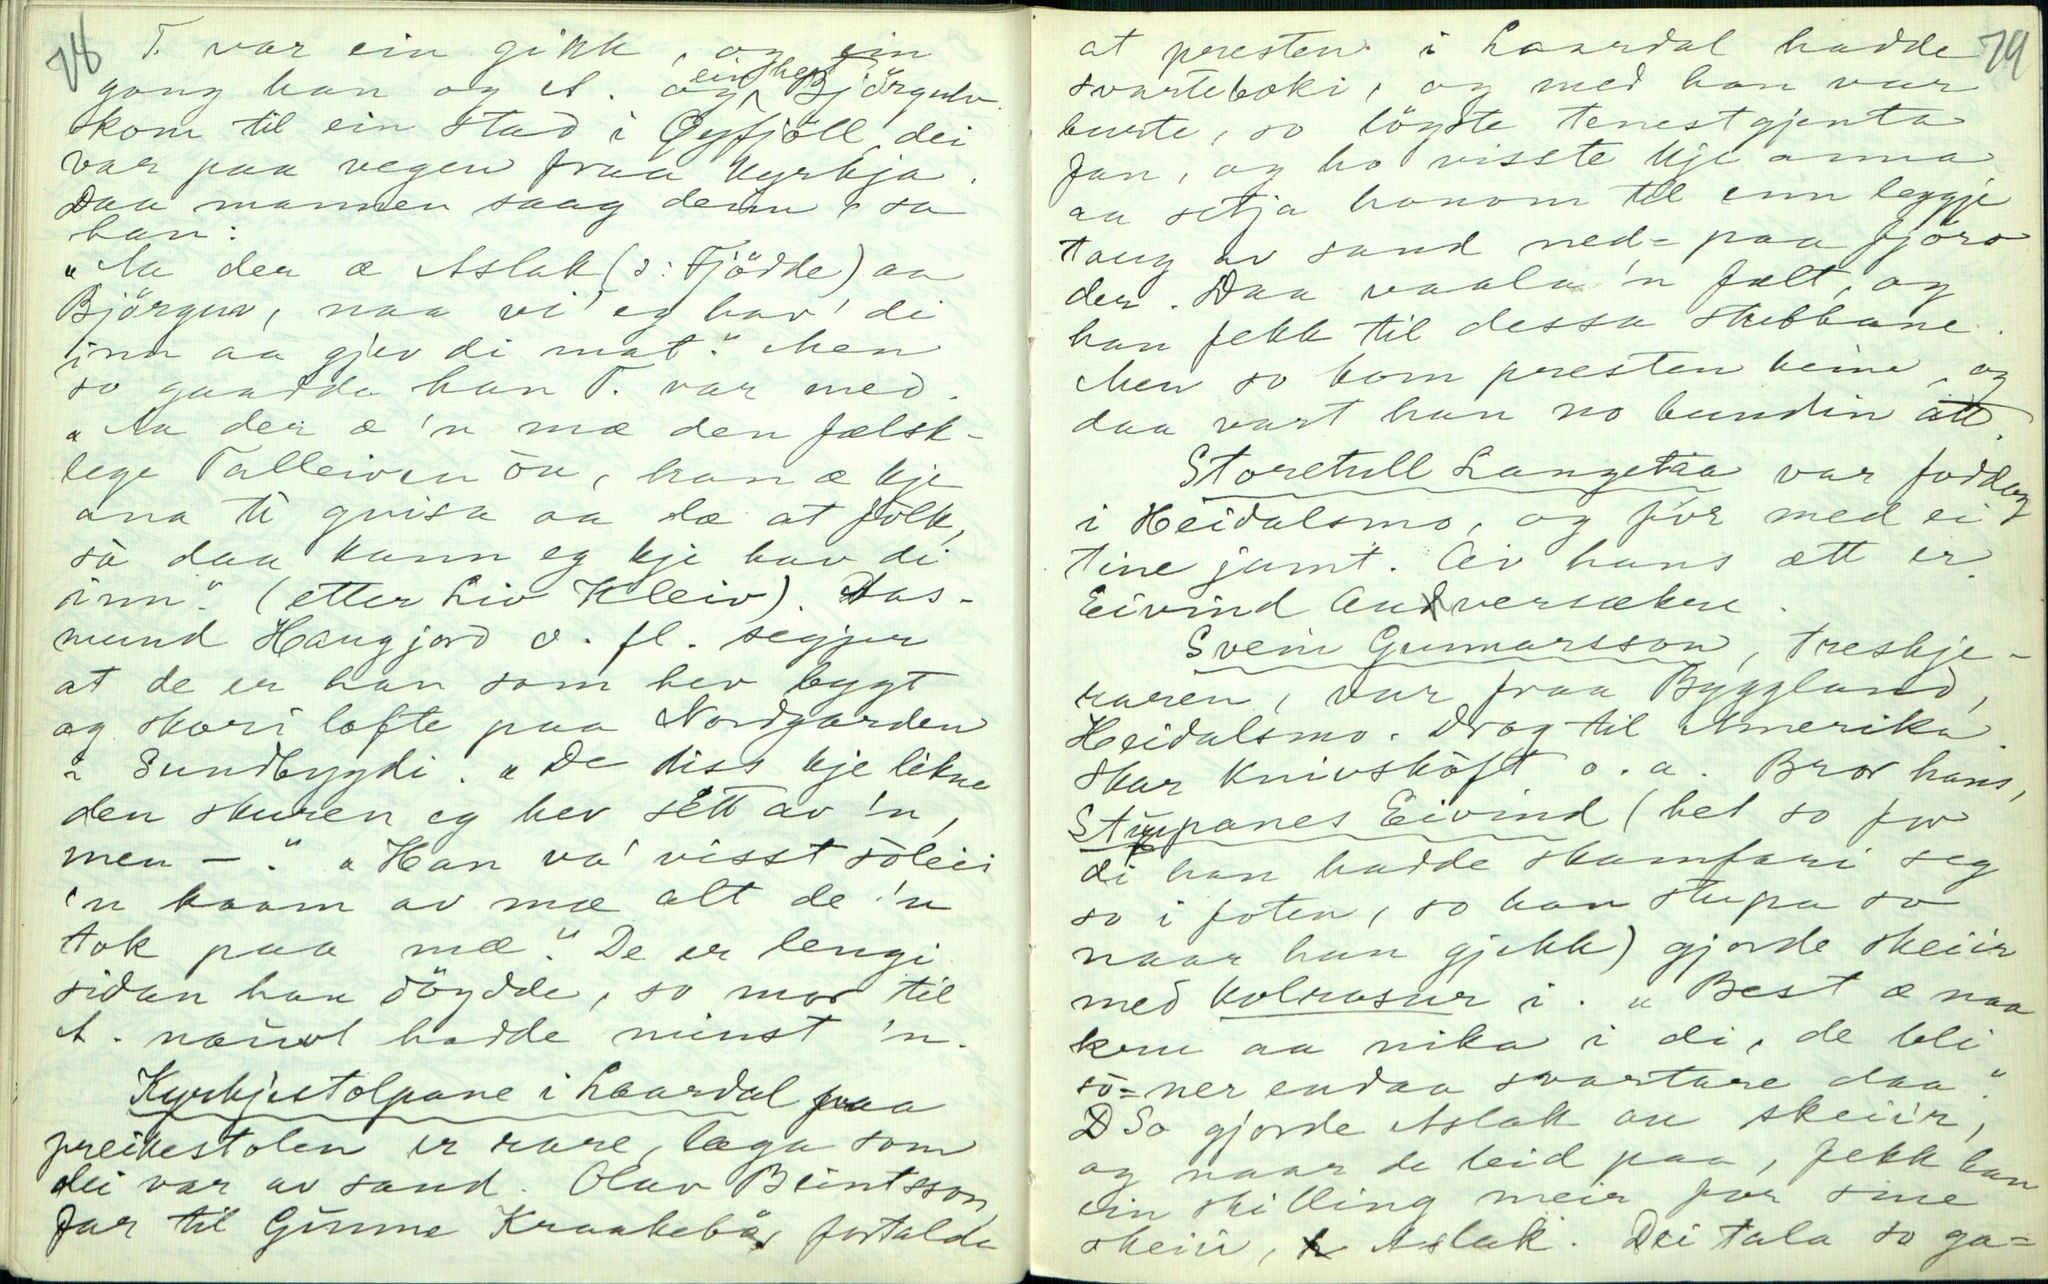 78
T. var ein gikk, og ein
gong han og A. og ein het Björgulv
kom til ein stad i Öyfjöll, dei
var paa vegen fraa kyrkja.
Daa mannen saag deim, sa
han:
"Aa der æ Aslak (ɔ: Fjödde) aa
Björguv, naa vi' eg hav' di
inn aa gjev di mat." Men
so gaadde han T. var med.
"Aa der æ 'n mæ den fælsk-
lege Talleiven òu, han æ kje
ana ti gvisa aa læ at fölk,
sò daa kann eg kje hav di
inn." (etter Liv Kleiv). Aas-
mund Haugjord o. fl. segjer
at de er han som hev bygt
og skori lofte paa Nordgarden
i Sundbygdi. "De liss kje likna
den skuren eg hev sètt av 'n,
men –." "Han va' visst sòleis
'n kaam av mæ alt de 'n
tok paa mæ." De er lengi
sidan han döydde, so mor til
A. næuvt hadde minst 'n.
Kyrkjestolpane i Laardal paa
preikestolen er rare, laga som
dei var av sand. Olav Beintsson,
far til Gunne Kraakebö, fortalde
79
at presten i Laardal hadde
svarteboki, og med han var
burte, so löyste tenestgjenta
fan, og ho visste kje anna
aa setja honom til enn leggje
taug av sand ned- paa fjöro
der. Daa vaala 'n fælt, og
han fekk til dessa stubbane.
Men so kom presten heim, og
daa vart han no bundin att.
Storetull Langetaa var fodd og
i Heidalsmo, og fór med ei
tine jamt. Av hans ætt er
Eivind Andversækre.
Svein Gunnarsson, treskje-
raren, var fraa Byggland,
Heidalsmo. Drog til Amerika.
Skar knivsköft o. a. Bror hans,
Stupanes Eivind (het so for
di han hadde skamfari seg
so i foten, so han stupa so
naar han gjekk) gjorde skeiir
med kolrosur i. "Best æ naa
kem aa nika i di, de bli
sò-ner endaa svartare daa."
So gjorde Aslak au skeiir,
og naar de leid paa, fekk han
ein skilling meir for sine
skeiir, Aslak. Dei tala so ga-